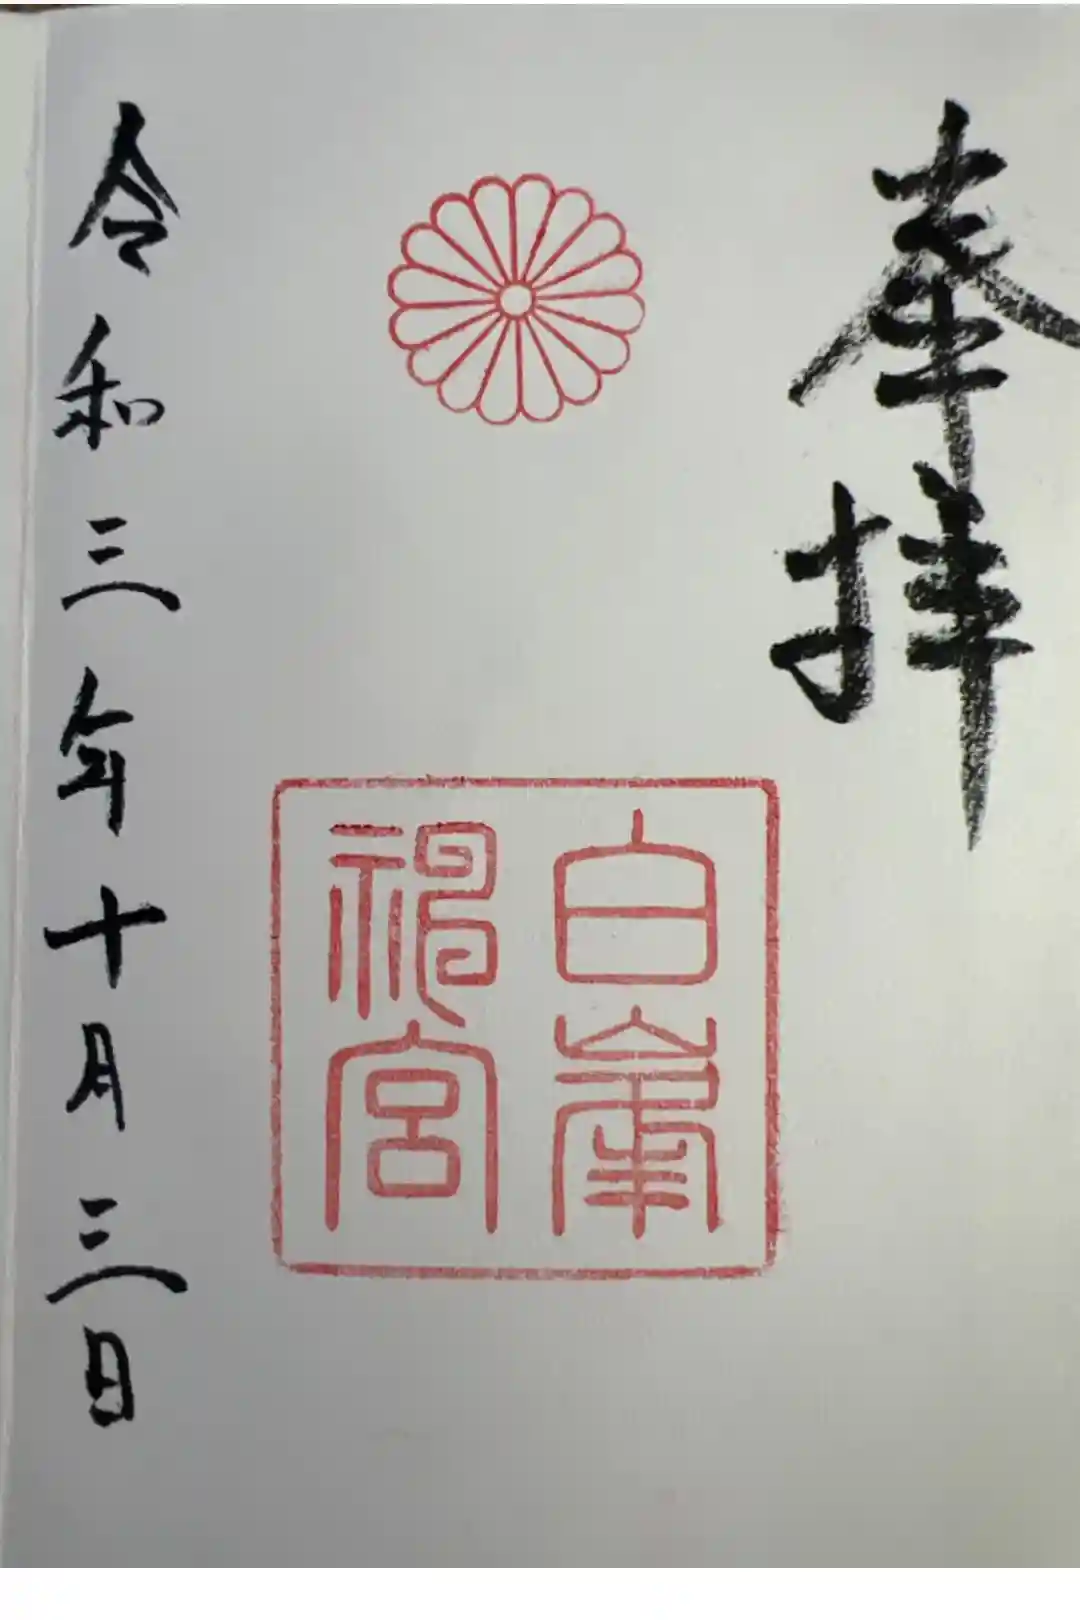 奉拝
白峯
神宮
令和三年十月三日